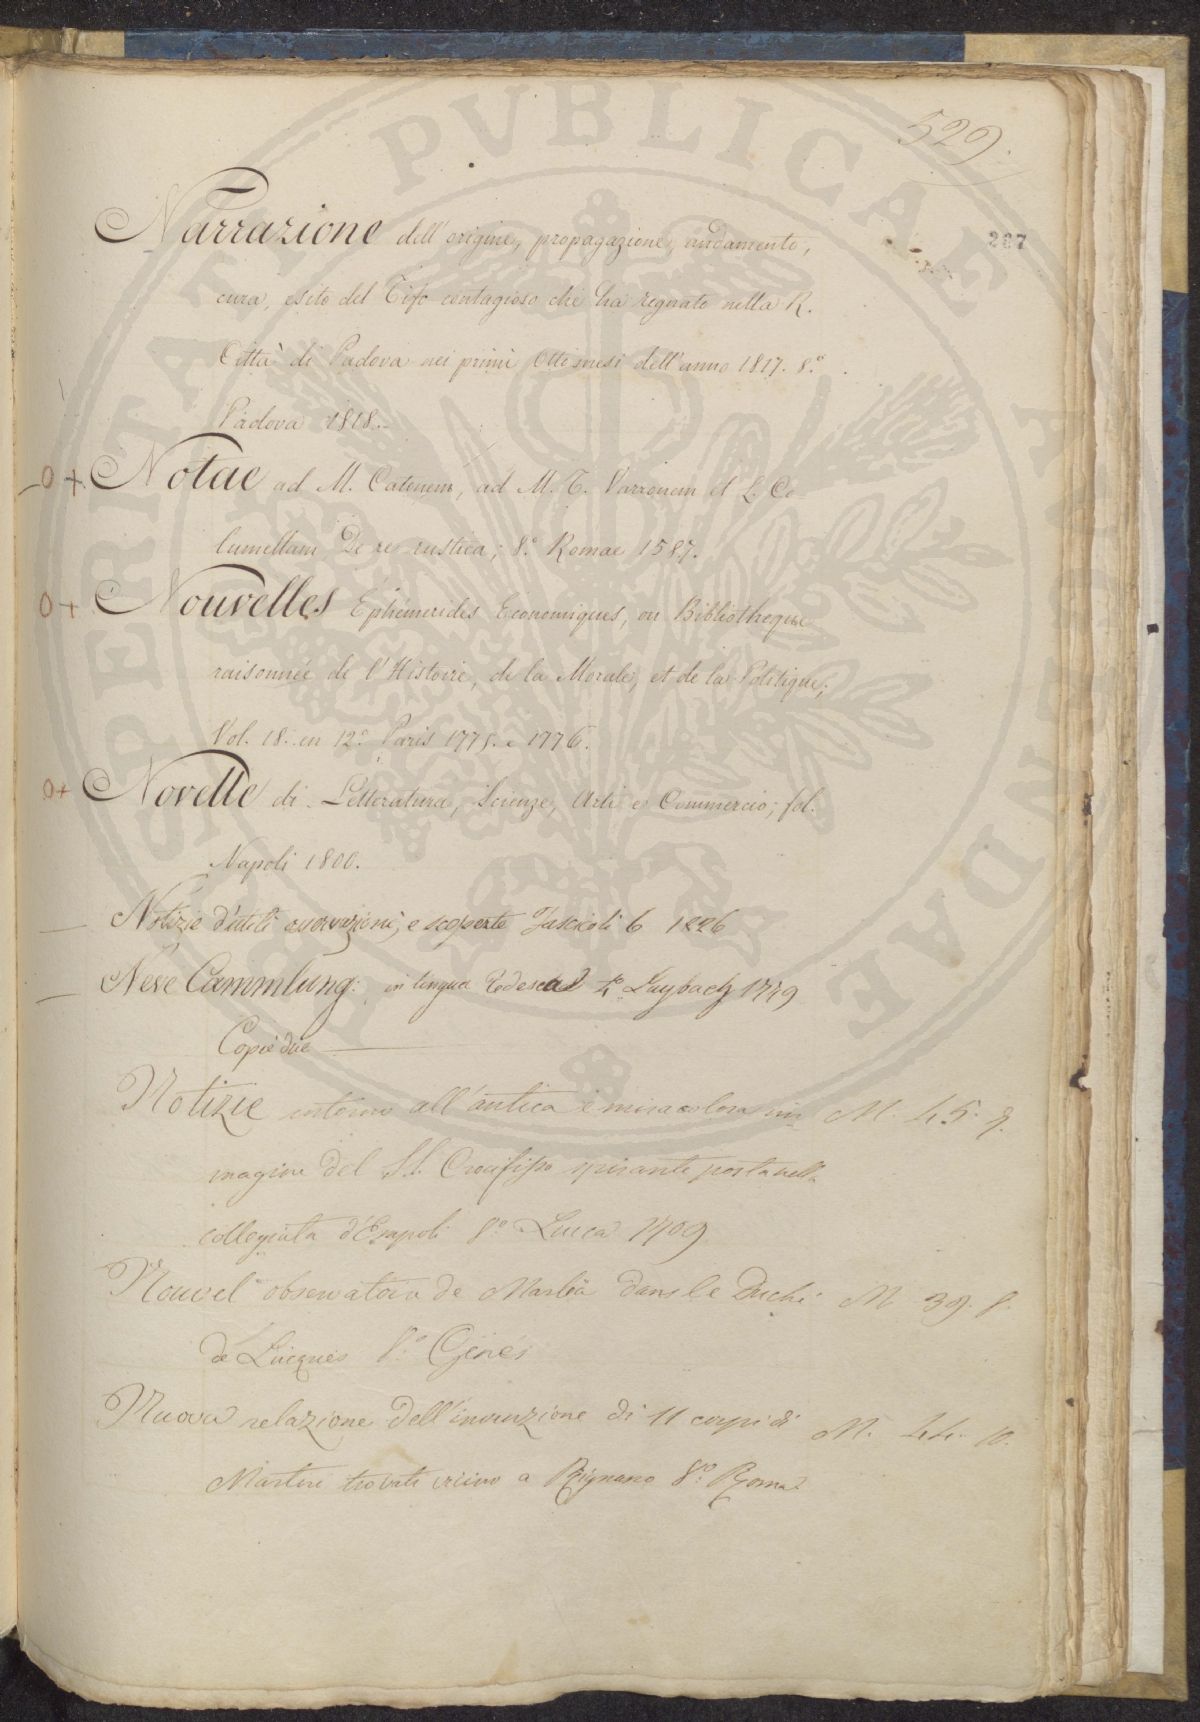 529.
267
Narrazione dell'origine, propagazione, andamento,
cura, esito del Tifo contagioso che ha regnato nella R.
Città di Padova nei primi otto mesi dell'anno 1817. 8.°
Padova 1818.
O + Notae ad M. Catonem, ad M. T. Varronem et L. Co
lumellam De re rustica; 8.° Romae 1587.
O + Nouvelles Ephémerides Economiques, ou Bibliotheque
raisonnée de l'Histoire, de la Morale, et de la Politique;
Vol. 18. en 12.° Paris 1775. e 1776.
O + Novelle di Letteratura, Scienze, Arti e Commercio; fol.
Napoli 1800.
Notizie d'utili osservazioni, e scoperte Fascicoli 6 1826
Neve Cammlung: in lingua Tedesca 4.° Laybach 1779
Copie due
Notizie intorno all'antica e miracolosa im M. 45. 7.
magine del SS. Crocifisso spirante posta nella
collegiata d'Empoli 8.° Lucca 1709
Nouvel observatoire de Marlia dans le Duché M. 39. 8.
de Lucques 8.° Génes
Nuova relazione dell'invenzione di 11 corpi di M. 44. 10.
Martiri trovati vicino a Rignano 8.° Roma
PROSPERITATI PVBLICAE AVGENDAE